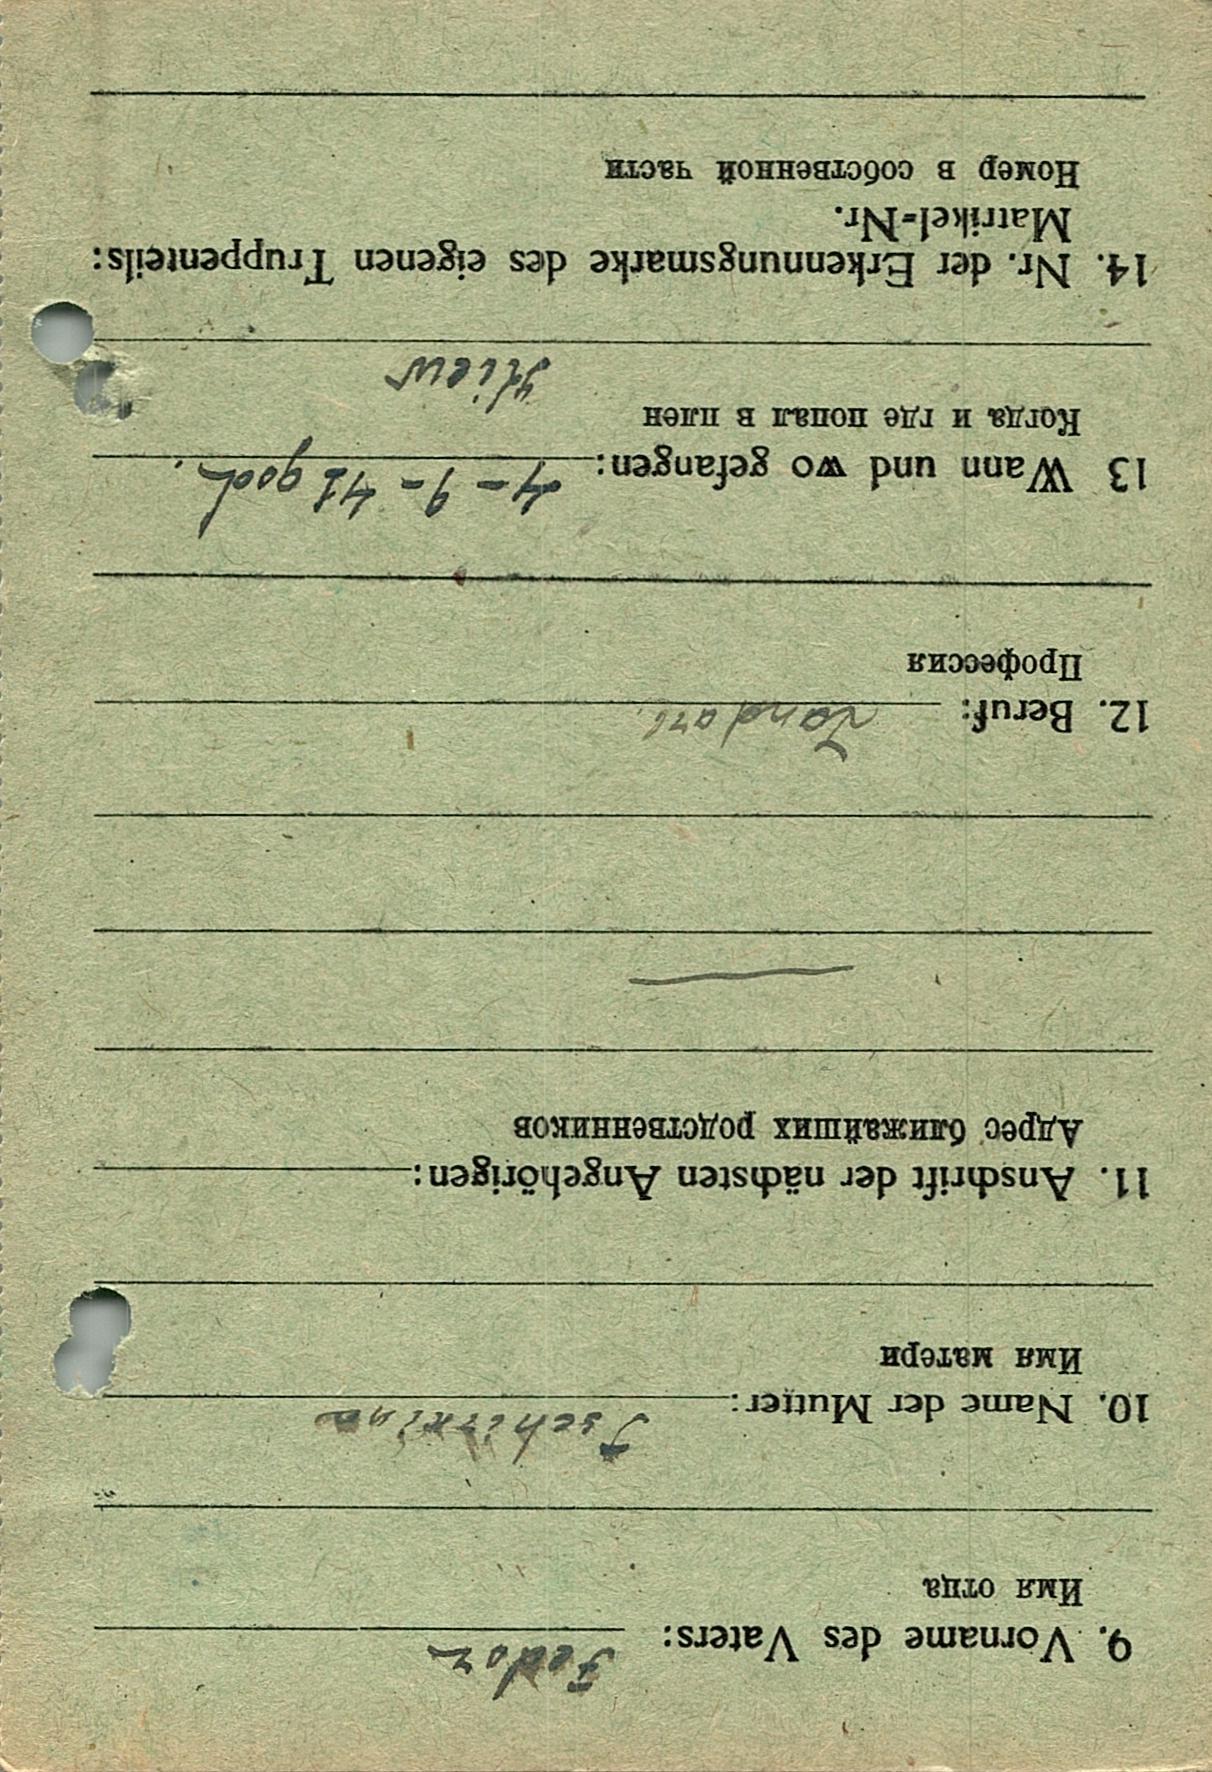 9. Vorname des Vaters: Fedor
Имя отца
10. Name der Mutter: Tschirkina
Имя матери
11. Anschrift der nächsten Angehörigen:
Адрес ближайших родственников
12. Beruf: Landarb.
Профессия
13 Wann und wo gefangen: 4-9-41 god.
Когда и где попал в плен
Kiew
14. Nr. der Erkennungsmarke des eigenen Truppenteils:
Matrikel-Nr.
Номер в собственной части